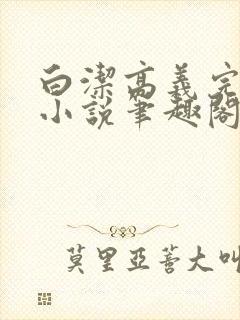 白潔高義完
小說筆趣閣
莫里亞蒼大叫